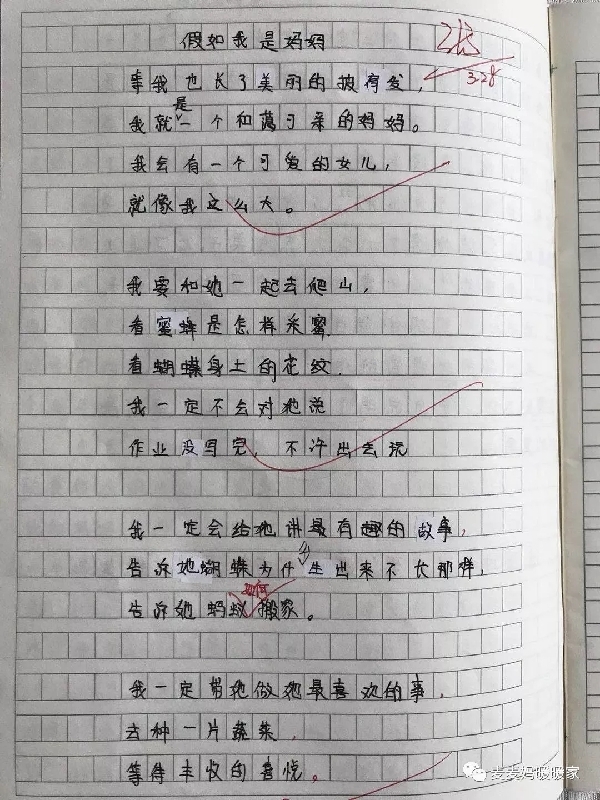 假如我是妈妈
3.28
等我也长了美丽的披肩发，
我就是一个和蔼可亲的妈妈。
我会有一个可爱的女儿，
就像我这么大。
我要和她一起去爬山，
看蜜蜂是怎样采蜜
看蝴蝶身上的花纹.
我一定不会对她说
作业没写完，不许出去玩
我一定会给她讲最有趣的故事，
告诉她蝴蝶为什么生出来不长那样，
告诉她蚂蚁如何搬家。
我一定带她做她最喜欢的事，
去种一片蔬菜，
等待丰收的喜悦。
麦麦妈暖暖家